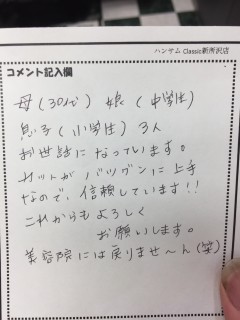 ハンサム Classic新所沢店
コメント記入欄
母(30代) 娘(中学生)
息子(小学生) 3人
お世話になっています。
カットが バツグンに上手
なので、信頼しています!!
これからもよろしく
お願いします。
美容院には戻りませ〜ん(笑)